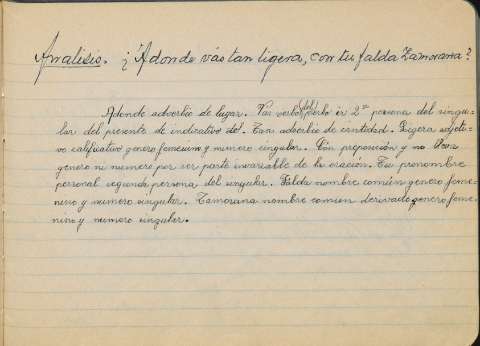 Analisis. ¿Adonde vás tan ligera, con tu falda Zamorana?
Adonde adverbio de lugar. Vas verbo, del verbo ir 2ª persona del singu-
lar del presente de indicativo de. Tan adverbio de cantidad. Ligera adjeti-
vo calificativo genero femenino y numero singular. Con preposición y no
genero ni numero por ser parte invariable de la oración. Tu pronombre
personal segunda persona del singular. Falda nombre común genero feme-
nino y numero singular. Zamorana nombre comun derivado genero feme-
nino y numero singular.